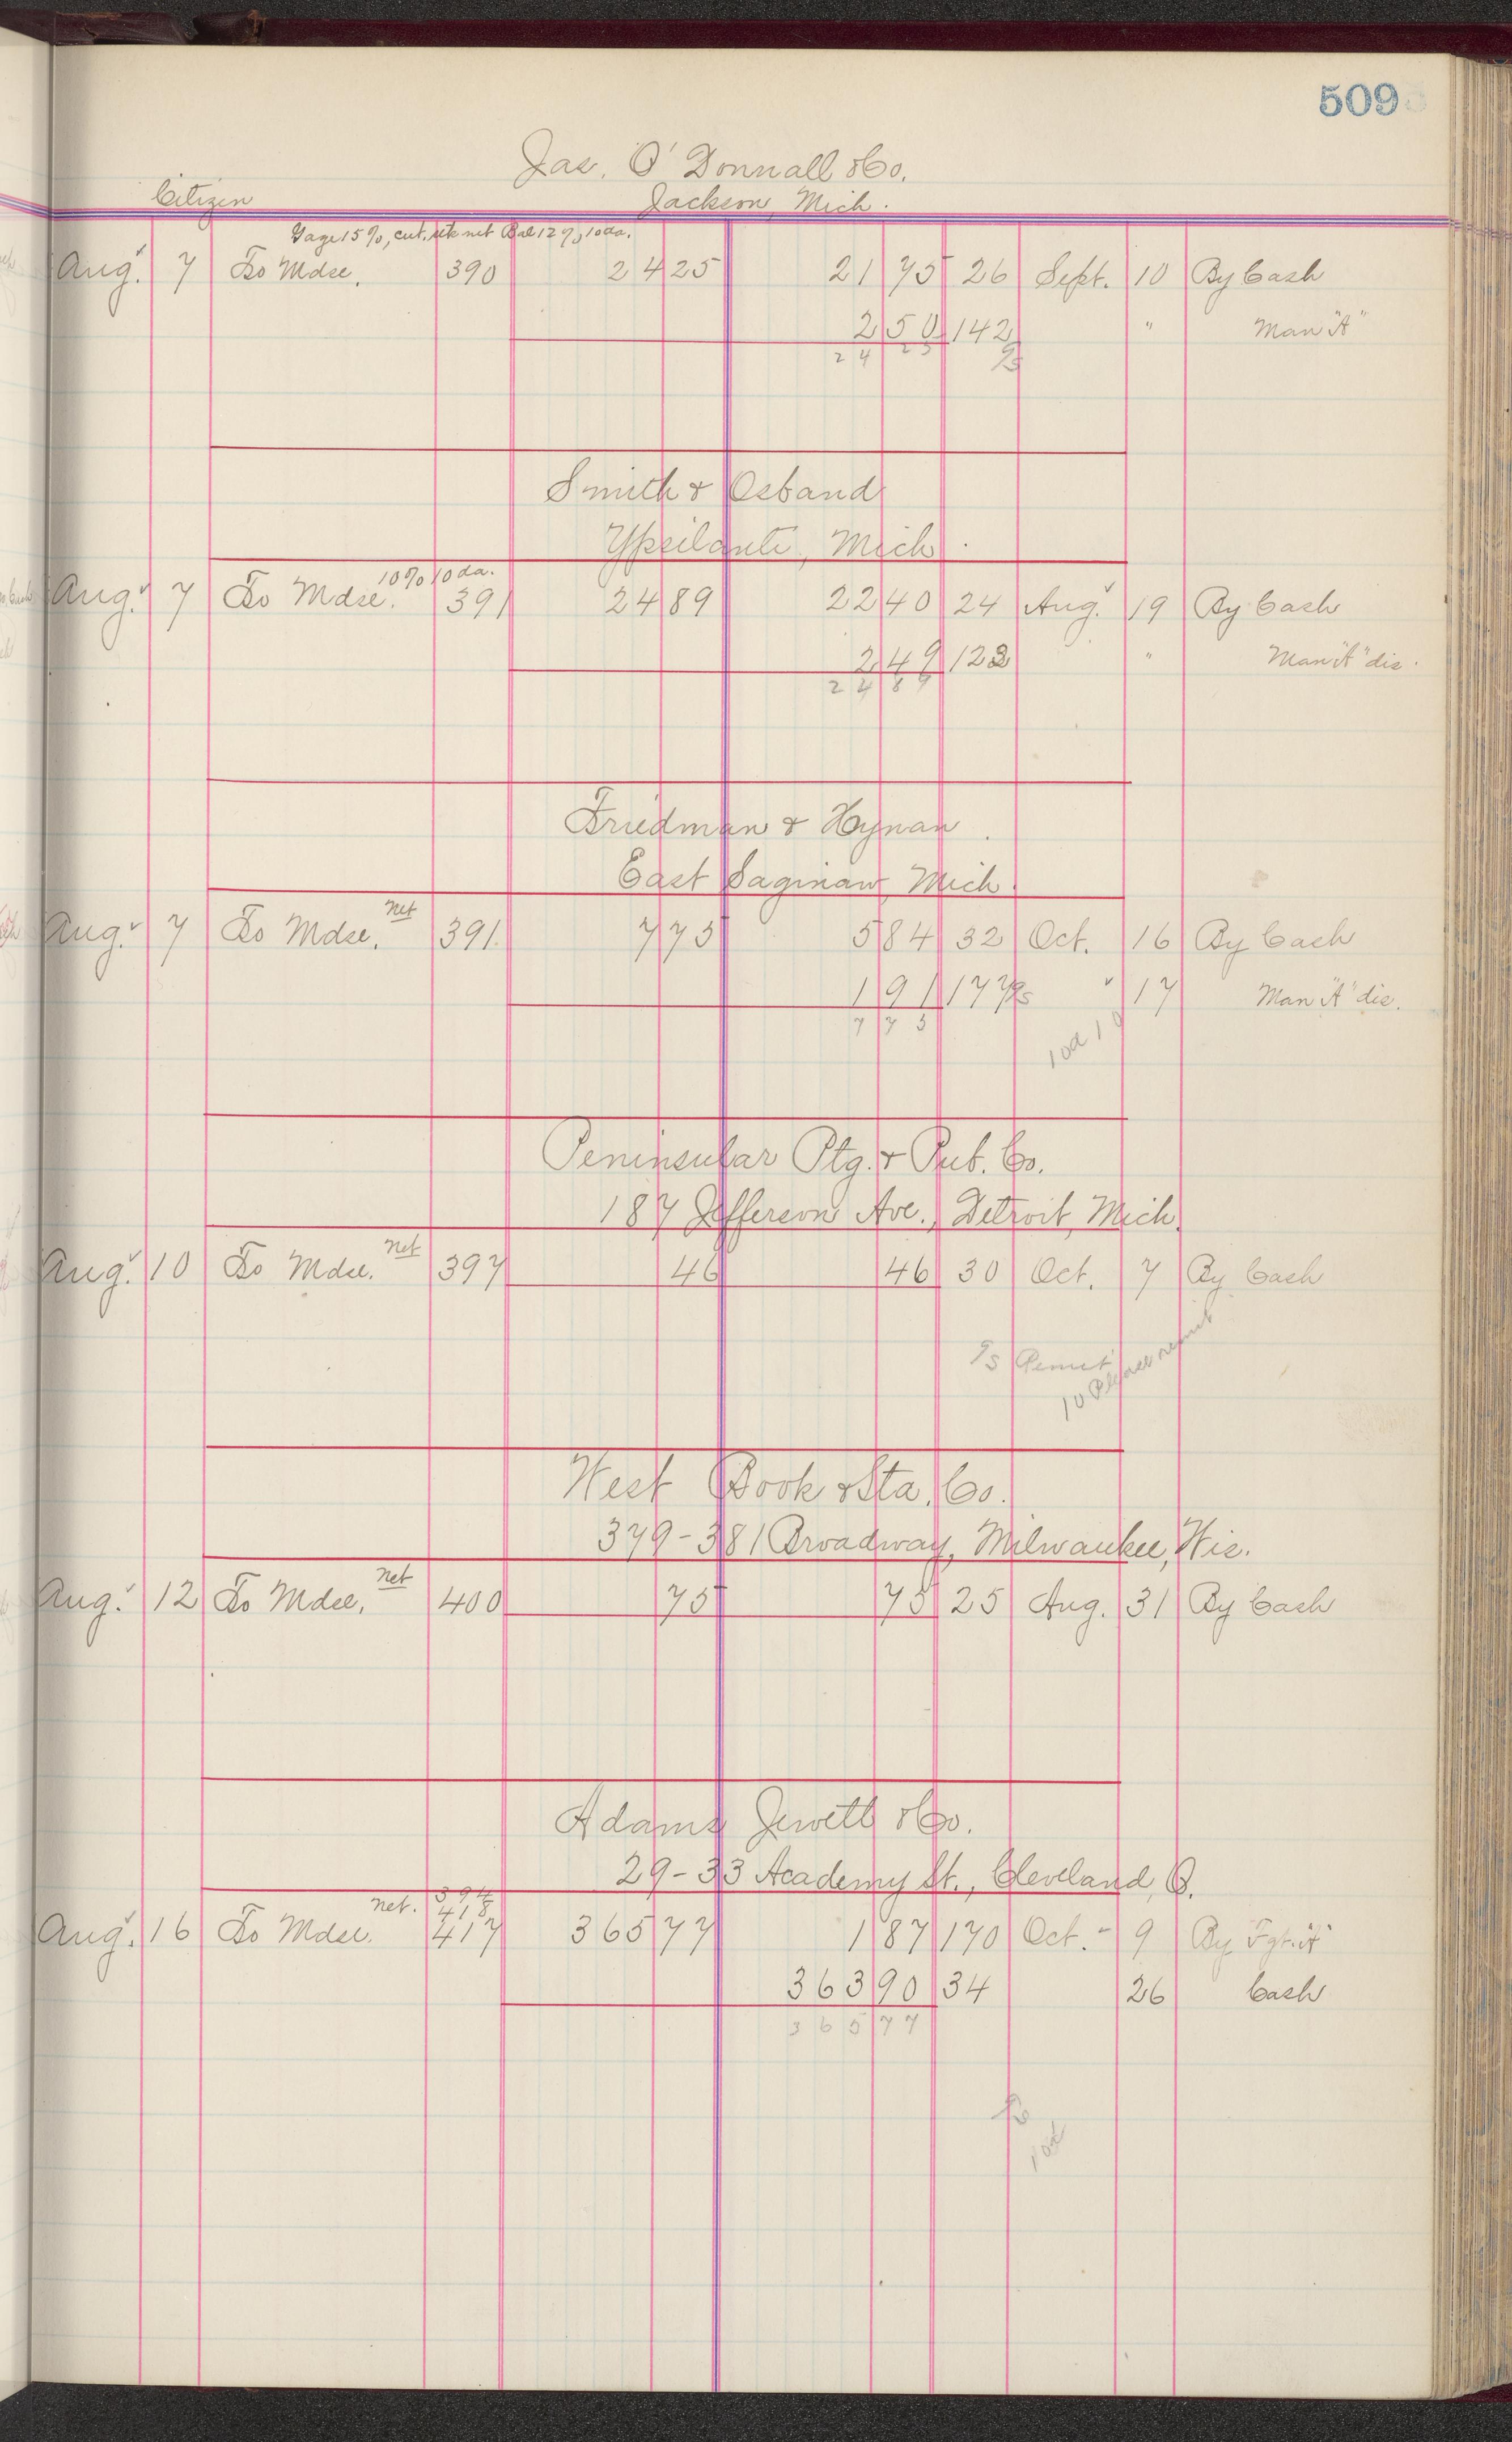 509
Jas. O'Donnall & Co.
Citizen Jackson, Mich.
Gage 15%, cut, net Bal 12%, 10 da.
Aug. 7 To Mdse. 390 24 25 21 75 26 Sept. 10 By Cash
2 50 142 " Man "A"
24 25 9/5
Smith & Osband
Ypsilanti, Mich.
10% 10 da.
Aug. 7 To Mdse. 391 24 89 22 40 24 Aug. 19 By Cash
2 49 123 " Man "A" dis.
24 89
Friedman & Hynan.
East Saginaw, Mich.
net
Aug. 7 To Mdse. 391 7 75 5 84 32 Oct. 16 By Cash
1 91 177 9/5 " 17 Man "A" dis.
7 75
Peninsular Ptg. & Pub. Co.
187 Jefferson Ave., Detroit, Mich.
net
Aug. 10 To Mdse. 397 46 46 30 Oct. 7 By Cash
9/5 Remit
10 Please remit
West Book & Sta. Co.
379-381 Broadway, Milwaukee, Wis.
net
Aug. 12 To Mdse. 400 75 75 25 Aug. 31 By Cash
Adams Jewett & Co.
29-33 Academy St., Cleveland, O.
net. 394
418
Aug. 16 To Mdse. 417 365 77 1 87 170 Oct. 9 By Fgt. "A"
363 90 34 26 Cash
365 77